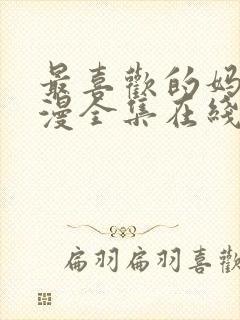 最喜歡的妈
漫全集在綫
扁羽扁羽喜歡